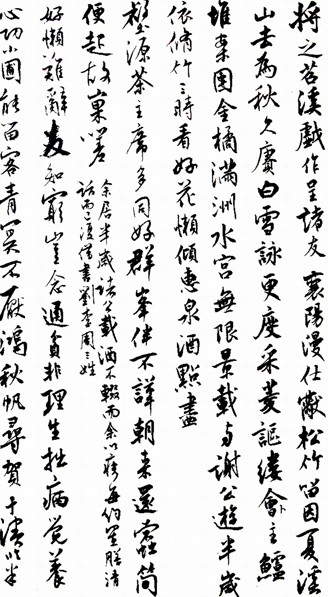 將之苕溪戲作呈諸友襄陽漫仕黻松竹留因夏溪
山去為秋久賡白雪詠更度采菱謳縷會玉鱸
堆案團金橘滿洲水宮無限景載與謝公遊半歲
依脩竹三時看好花懶傾惠泉酒點盡
壑源茶主席多同好群峯伴不譁朝來還蠹簡
便起故巢嗟
余居半歲諸公載酒不輟而余以疾每約置膳清
話而已復借書劉李周三姓
好懶難辭友知窮豈念通貧非理生拙病覺養
心功小圃能留客青冥不厭鴻秋帆尋賀